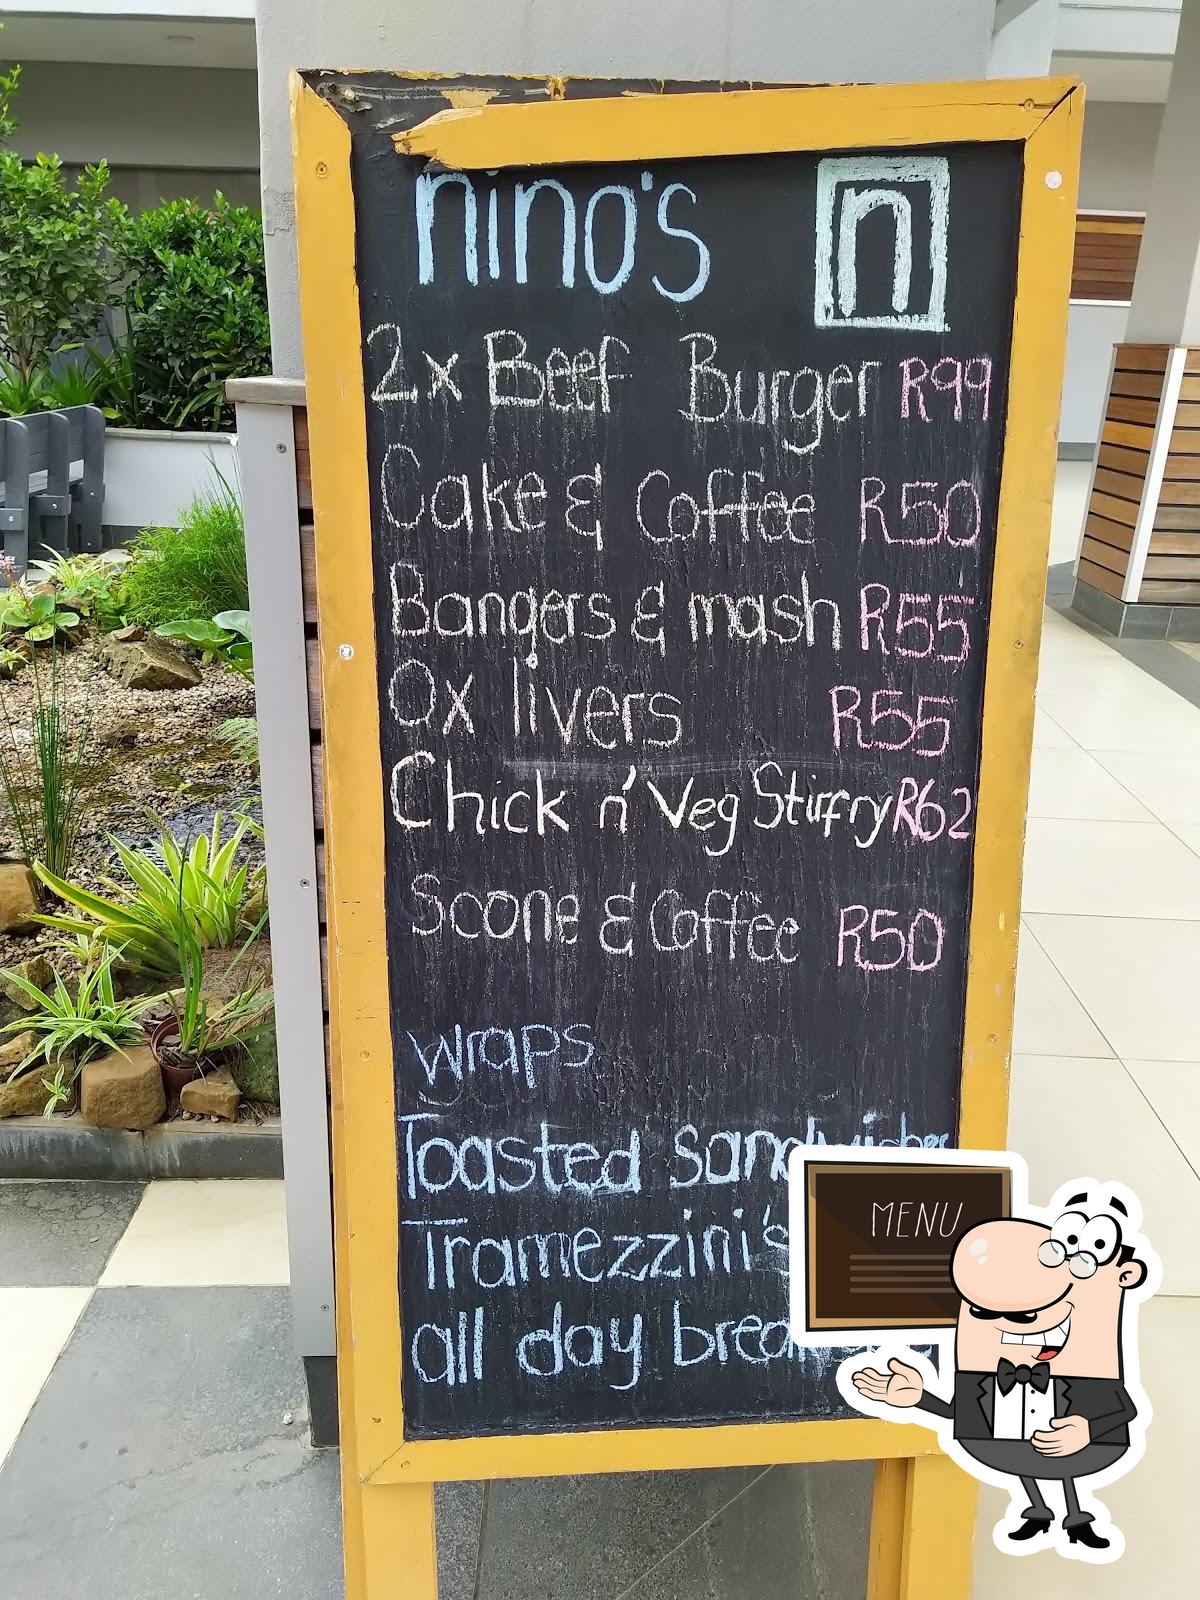 nino's n
2x Beef Burger R99
Cake & Coffee R50
Bangers & mash R55
Ox livers R55
Chick n' Veg Stirfry R62
Scone & Coffee R50
wraps
Toasted sandwiches
Tramezzini's
all day
MENU